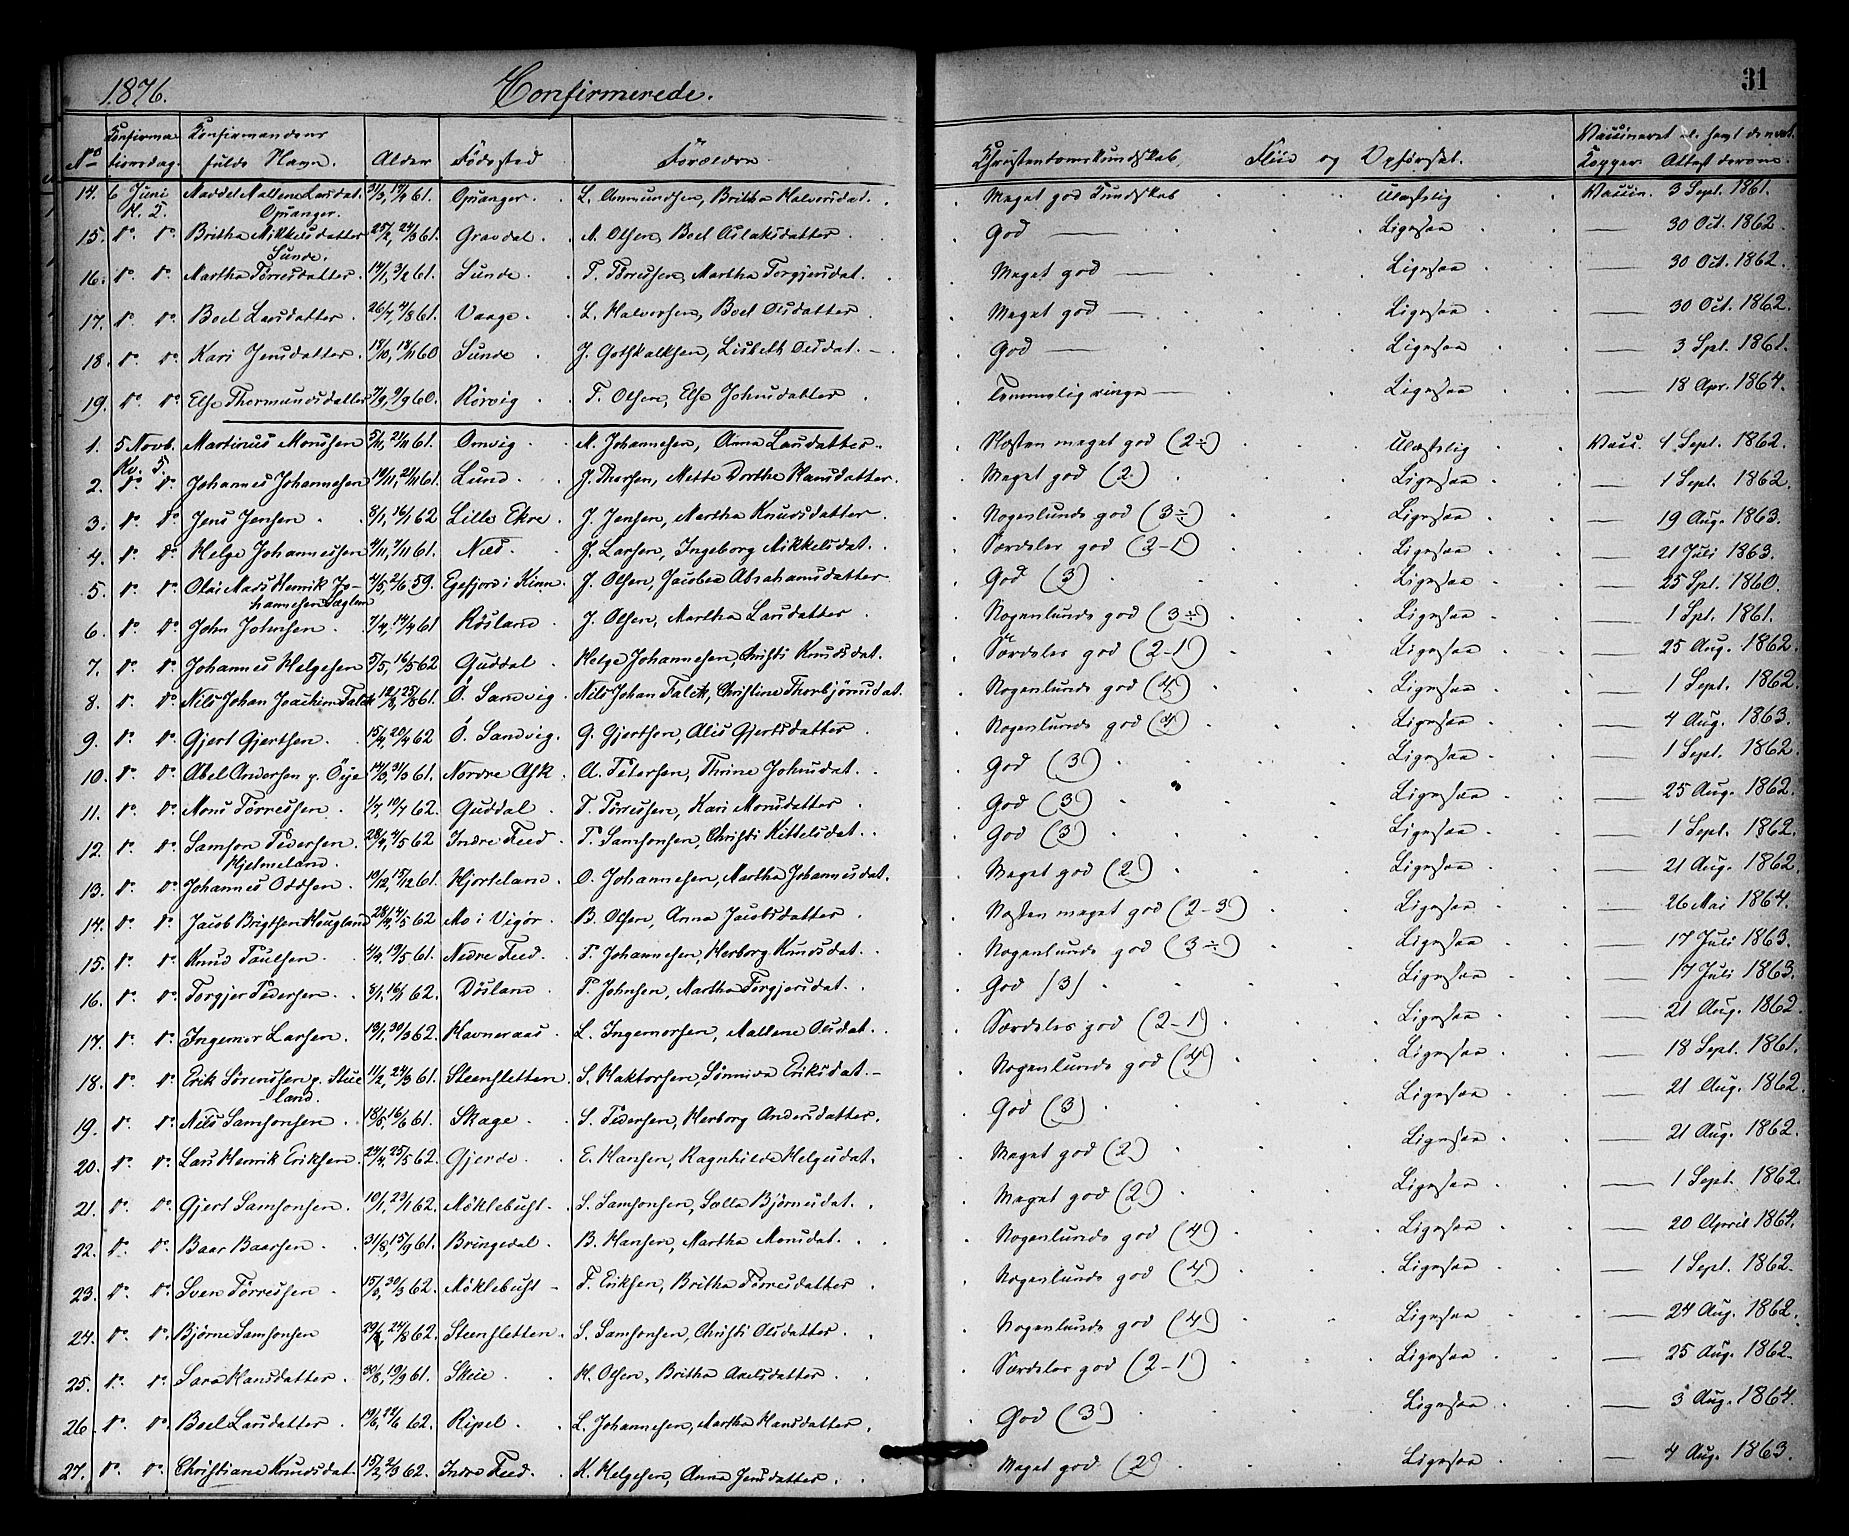 1876. Confirmerede. 31
No Confirma- Confirmandens Alder Fødested Forældre Christendomskundskab, Flid og Opførsel. Vaccineret el. havt de nat.
tionsdag. fulde Navn. Kopper. Attest derom.
14. 6 Juni Malene Larsdat. 61. Opsanger. L. Ammundsen, Britha Halvorsdat. Meget god Kundskab Ulastelig Vaccin. 3 Sept. 1861.
Opsanger.
15. do do Britha Mikkelsdatter 25/2, 24/3 61. Gravdal. M. Olsen, Boel Aslaksdatter. God — Ligesaa — 30 Oct. 1862.
Sunde.
16. do do Martha Tørresdatter. 14/1, 3/2 61. Sunde. T. Tørresen, Martha Torgjersdat. Meget god — Ligesaa — 30 Oct. 1862.
17. do do Boel Larsdatter. 26/7, 4/8 61. Vaage. L. Halvorsen, Boel Olsdatter. Meget god — Ligesaa — 30 Oct. 1862.
18. do do Kari Jensdatter. 18/10, 18/11 60 Sunde. J. Gothskalksen, Lisbeth Olsdat. God — Ligesaa — 3 Spt. 1861.
19. do do Else Thormundsdatter 7/9, 9/9 60. Rørvig. T. Olsen, Else Johnsdatter. Temmelig ringe — Ligesaa — 18 Apr. 1864.
1. 5 Novb. Martinus Monsen 61. Omvig. M. Johannesen, Anna Larsdatter. Næsten meget god (2÷) Ulastelig Vacc. Sept. 1862.
2. do do Johannes Johannesen 19/11, 24/11 61. Lund. J. Thorsen, Mette Dorthe Hansdatter. Meget god (2) Ligesaa — 1 Sept. 1862.
3. do do Jens Jensen. 8/1, 16/1 62 Lille Ekre. J. Jensen, Martha Knudsdatter. Nogenlunde god (3÷) Ligesaa — 19 Aug. 1863.
4. do do Helge Johannessen 4/11, 7/11 61. Næs. J. Larsen, Ingeborg Mikkelsdat. Særdeles god (2-1) Ligesaa — 21 Juli 1863.
5. do do Olai Mads Henrik Jo- 4/5, 2/6 59. Egefjord i Kinn. J. Olsen, Jacobea Abrahamsdatter God (3) Ligesaa — 25 Spt. 1860.
hannesen
6. do do John Johnsen. 7/4, 14/4 61 Røsland. J. Olsen, Martha Larsdatter. Nogenlunde god (3÷) Ligesaa — 1 Spt. 1861.
7. do do Johannes Helgesen 5/5, 16/5 62 Guddal. Helge Johannesen, Christi Knudsdat. Særdeles god (2-1) Ligesaa — 25 Aug. 1862.
8. do do Nils Johan Joachim Falck 12/8, 25/8 61. Ö. Sandvig. Nils Johan Falck, Christine Thorbjörnsdat. Nogenlunde god (4) Ligesaa — 1 Sept. 1862.
9. do do Gjert Gjertsen. 15/4, 20/4 62 Ö. Sandvig. G. Gjertsen, Alis Gjertsdatter. Nogenlunde god (4) Ligesaa — 4 Aug. 1863.
10. do do Abel Andersen p. Öye 14/3, 31/3 61. Nordre Ask. A. Petersen, Thrine Johnsdat. God (3) Ligesaa — 1 Sept. 1862.
11. do do Mons Tørresen. 1/4, 19/4 62. Guddal. T. Tørresen, Kari Monsdatter. God (3) Ligesaa — 25 Aug. 1862.
12. do do Samson Pedersen 28/4, 4/5 62 Indre Feed. P. Samsonsen, Christi Kittelsdat. God (3) Ligesaa — 1 Sept. 1862.
Hjelmeland.
13. do do Johannes Oddsen. 10/12, 15/12 61. Hjorteland. O. Johannesen, Martha Johannesdat. Meget god (2) Ligesaa — 21 Aug. 1862.
14. do do Jacob Brigtsen Hougland 28/4, 4/5 62 Mo i Vigör. B. Olsen, Anna Jacobsdatter. Næsten meget god (2-3) Ligesaa — 26 Mai 1864.
15. do do Knud Paulsen. 4/4, 19/5 61. Nedre Feed. P. Johannesen, Herborg Knudsdat. Nogenlunde god (3÷) Ligesaa — 17 Juli 1863.
16. do do Torgjer Pedersen. 8/1, 16/1 62. Døsland. P. Johnsen, Martha Torgjersdat. God /3/ Ligesaa — 17 Juli 1863.
17. do do Ingemor Larsen. 13/1, 30/3 62. Havneraas. L. Ingemorsen, Mallene Olsdat. Særdeles god (2-1) Ligesaa — 21 Aug. 1862.
18. do do Erik Sørenssen p. Skue 11/2, 24/3 61. Steensletten. S. Haktorsen, Sønniva Eriksdat. Nogenlunde god (4) Ligesaa — 18 Sept. 1861.
land.
19. do do Nils Samsonsen. 18/5, 16/6 61. Skage. S. Pedersen, Herborg Andersdatter. God (3) Ligesaa — 21 Aug. 1862.
20. do do Lars Henrik Eriksen. 24/4, 25/5 62. Gjerde. E. Hansen, Ragnhilde Helgesdat. Meget god (2) Ligesaa — 21 Aug. 1862.
21. do do Gjert Samsonsen. 10/1, 23/1 62. Möklebust. S. Samsonsen, Solle Björnsdat. Meget god (2) Ligesaa — 1 Sept. 1862.
22. do do Baar Baarsen. 31/8, 15/9 61. Bringedal. B. Hansen, Martha Monsdat. Nogenlunde god (4) Ligesaa — 20 April 1864.
23. do do Sven Tørresen. 15/3, 30/3 62. Möklebust. T. Eriksen, Britha Tørresdatter. Nogenlunde god (4) Ligesaa — 1 Sept. 1862.
24. do do Bjørne Samsonsen 24/8 62. Steensletten. S. Samsonsen, Christi Olsdatter. Nogenlunde god (4) Ligesaa — 24 Aug. 1862.
25. do do Sara Hansdatter. 30/8, 19/9 61. Skeie. H. Olsen, Britha Axelsdatter. Særdeles god (2-1) Ligesaa — 25 Aug. 1862.
26. do do Boel Larsdatter. 62. Ripel. L. Johannesen, Martha Hansdatter. God (3) Ligesaa — 3 Aug. 1864.
27. do do Christiane Knudsdat. 15/2, 2/3 62. Indre Feed. K. Helgesen, Anna Jensdatter. Meget god (2) Ligesaa — 4 Aug. 1863.